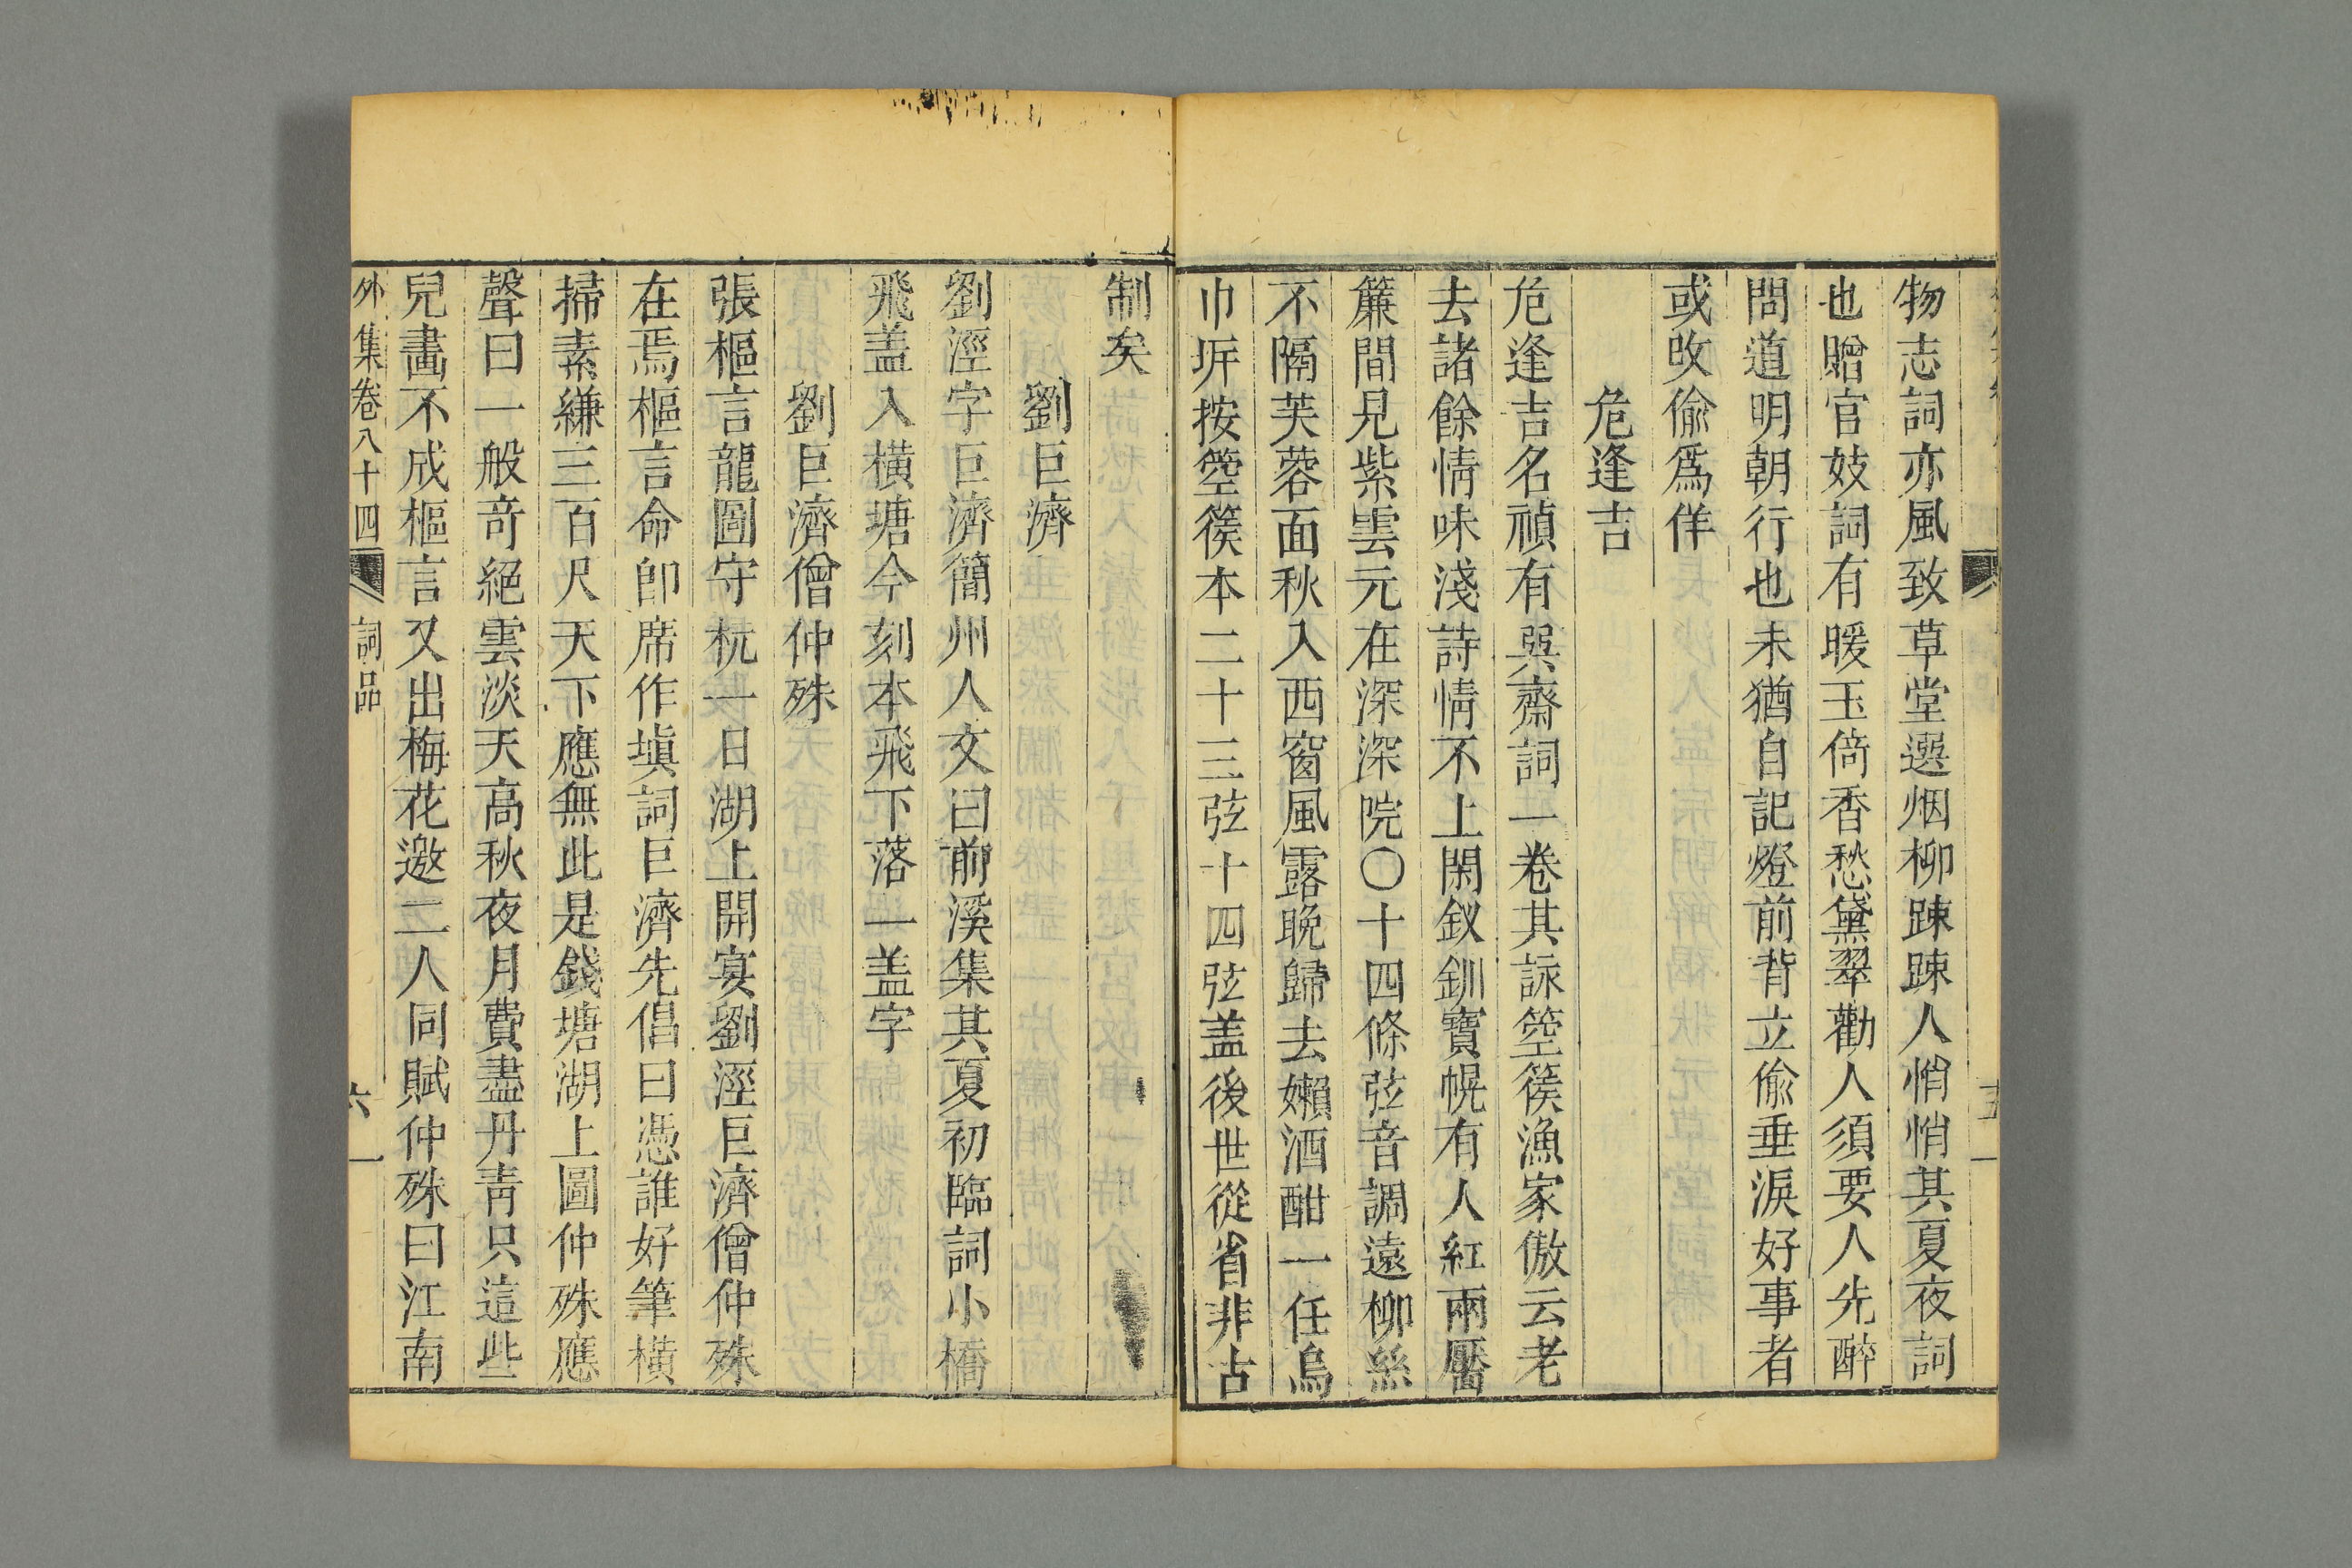 物志詞亦風致草堂選烟柳踈踈人悄悄其夏夜詞
也贈官妓詞有暖玉倚香愁黛翠勸人須要人先醉
問道明朝行也未猶自記燈前背立偷垂淚好事者
或改偷爲佯
危逢吉
危逢吉名禎有巽齋詞一卷其詠箜篌漁家傲云老
去諸餘情味淺詩情不上閑釵釧寶幌有人紅兩靨
簾間見紫雲元在深深院○十四條弦音調遠柳絲
不隔芙蓉面秋入西窗風露晚歸去嬾酒酣一任烏
巾岸按箜篌本二十三弦十四弦盖後世從省非古
制矣
劉巨濟
劉涇字巨濟簡州人文曰前溪集其夏初臨詞小橋
飛盖入橫塘今刻本飛下落一盖字
劉巨濟僧仲殊
張樞言龍圖守杭一日湖上開宴劉涇巨濟僧仲殊
在焉樞言命卽席作塡詞巨濟先倡曰憑誰好筆橫
掃素縑三百尺天下應無此是錢塘湖上圖仲殊應
聲曰一般奇絕雲淡天高秋夜月費盡丹靑只這些
兒畵不成樞言又出梅花邀二人同賦仲殊曰江南
外集卷八十四 詞品 六